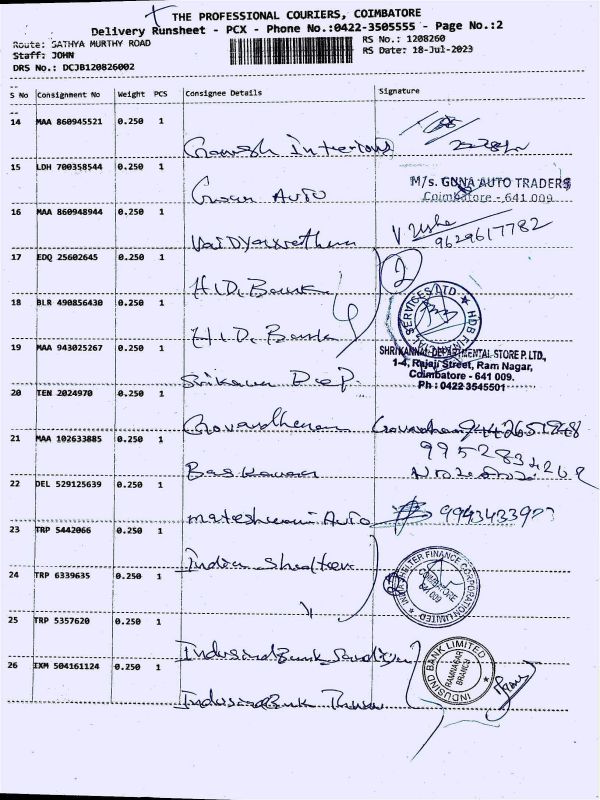 THE PROFESSIONAL COURIERS, COIMBATORE
Delivery Runsheet - PCX - Phone No.:0422-3505555 - Page No.:2
Route: SATHYA MURTHY ROAD
RS No.: 1208260
Staff: JOHN
RS Date: 18-Jul-2023
DRS No.: DCJB120826002
S No Consignment No Weight PCS Consignee Details Signature
14 MAA 860945521 0.250 1
Ganesh Interious
15 LDH 700358544 0.250 1
M/s. GUNA AUTO TRADERS
Coimbatore - 641 009
Auto
16 MAA 860948944 0.250 1
V Usha
9629617782
17 EDQ 25602645 0.250 1
2
H.D. Bank
18 BLR 490856430 0.250 1
H.D. Bank
19 MAA 943025267 0.250 1
SHRI KANNAN DEPARTMENTAL STORE P. LTD.,
1-4, Rajaji Street, Ram Nagar,
Coimbatore - 641 009.
Ph : 0422 3545501
Srikannan Dep.
20 TEN 2024970 0.250 1
Govardhanan Govardhan
21 MAA 102633885 0.250 1
Baskaran
22 DEL 529125639 0.250 1
Mateshwari Auto
23 TRP 5442066 0.250 1
India Shelter
INDIA SHELTER FINANCE CORPORATION LIMITED
COIMBATORE
641 009
24 TRP 6339635 0.250 1
25 TRP 5357620 0.250 1
IndusindBank
INDUSIND BANK LIMITED
RAMNAGAR
BRANCH
26 IXM 504161124 0.250 1
IndusindBank